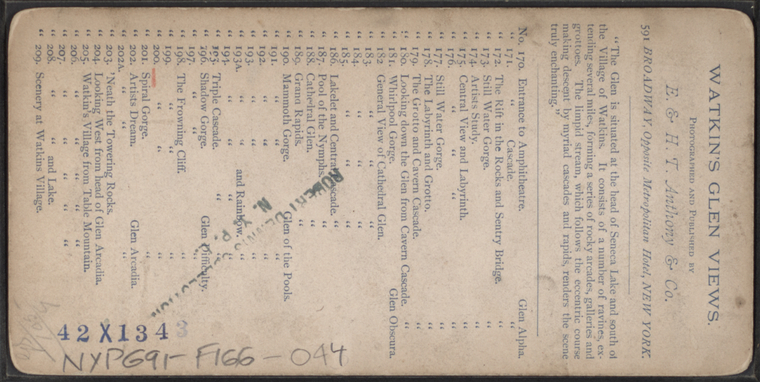 WATKIN'S GLEN VIEWS.
PHOTOGRAPHED AND PUBLISHED BY
E. & H. T. Anthony & Co.
591 BROADWAY, Opposite Metropolitan Hotel, NEW YORK.
"The Glen is situated at the head of Seneca Lake and south of
the Village of Watkins. It consists of a number of ravines, ex-
tending several miles, forming a series of rocky arcades, galleries and
grottoes. The limpid stream, which follows the eccentric course
making descent by myriad cascades and rapids, renders the scene
truly enchanting."
No. 170. Entrance to Amphitheatre. Glen Alpha.
" 171. " Cascade. "
" 172. The Rift in the Rocks and Sentry Bridge. "
" 173. Still Water Gorge. "
" 174. Artists Study. "
" 175. Central View and Labyrinth. "
" 176. " " " "
" 177. Still Water Gorge. "
" 178. The Labyrinth and Grotto. "
" 179. The Grotto and Cavern Cascade. "
" 180. Looking down the Glen from Cavern Cascade. "
" 181. Whirlpool Gorge. Glen Obscura.
" 182. General View of Cathedral Glen.
" 183. " " "
" 184. " " "
" 185. " " "
" 186. Lakelet and Central Cascade. "
" 187. Pool of the Nymphs. "
" 188. Cathedral Glen.
" 189. Grand Rapids.
" 190. Mammoth Gorge. Glen of the Pools.
" 191. " "
" 192. " "
" 193. " "
" 193A. " " and Rainbow. "
" 194. " "
" 195. Triple Cascade. "
" 196. Shadow Gorge. Glen Difficulty.
" 197. " "
" 198. The Frowning Cliff.
" 199. " "
" 200. " "
" 201. Spiral Gorge.
" 202. Artists Dream. Glen Arcadia.
" 202A. " " "
" 203. 'Neath the Towering Rocks.
" 204. Looking West from head of Glen Arcadia.
" 205. Watkin's Village from Table Mountain.
" 206. " " " "
" 207. " " " "
" 208. " " and Lake.
" 209. Scenery at Watkins Village.
ROBERT DENNIS
COLLECTION
N. Y. P. L.
42X1343
NYPG91-F166-044